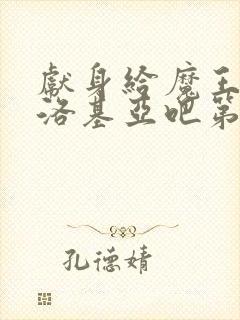 獻身給魔王
洛基亞吧第
孔德婧